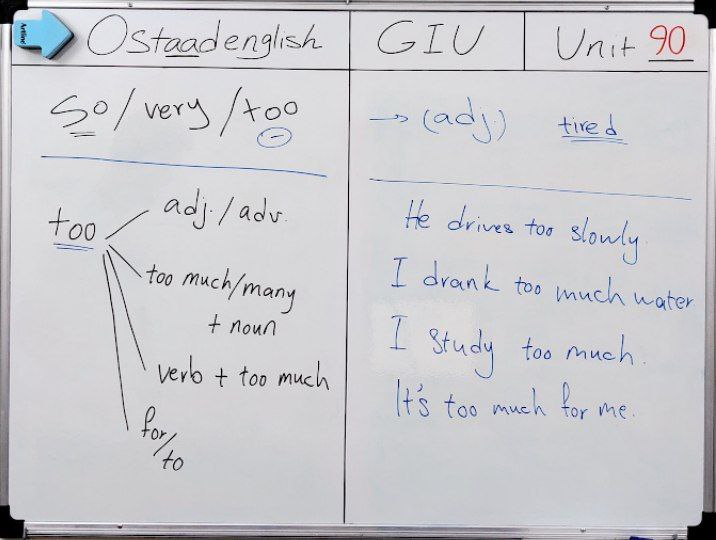 Artline
Ostaadenglish
GIU
Unit 90
so / very / too
-
→ (adj.) tired
too
adj. / adv.
too much/many
+ noun
verb + too much
for/to
He drives too slowly.
I drank too much water
I study too much.
It's too much for me.